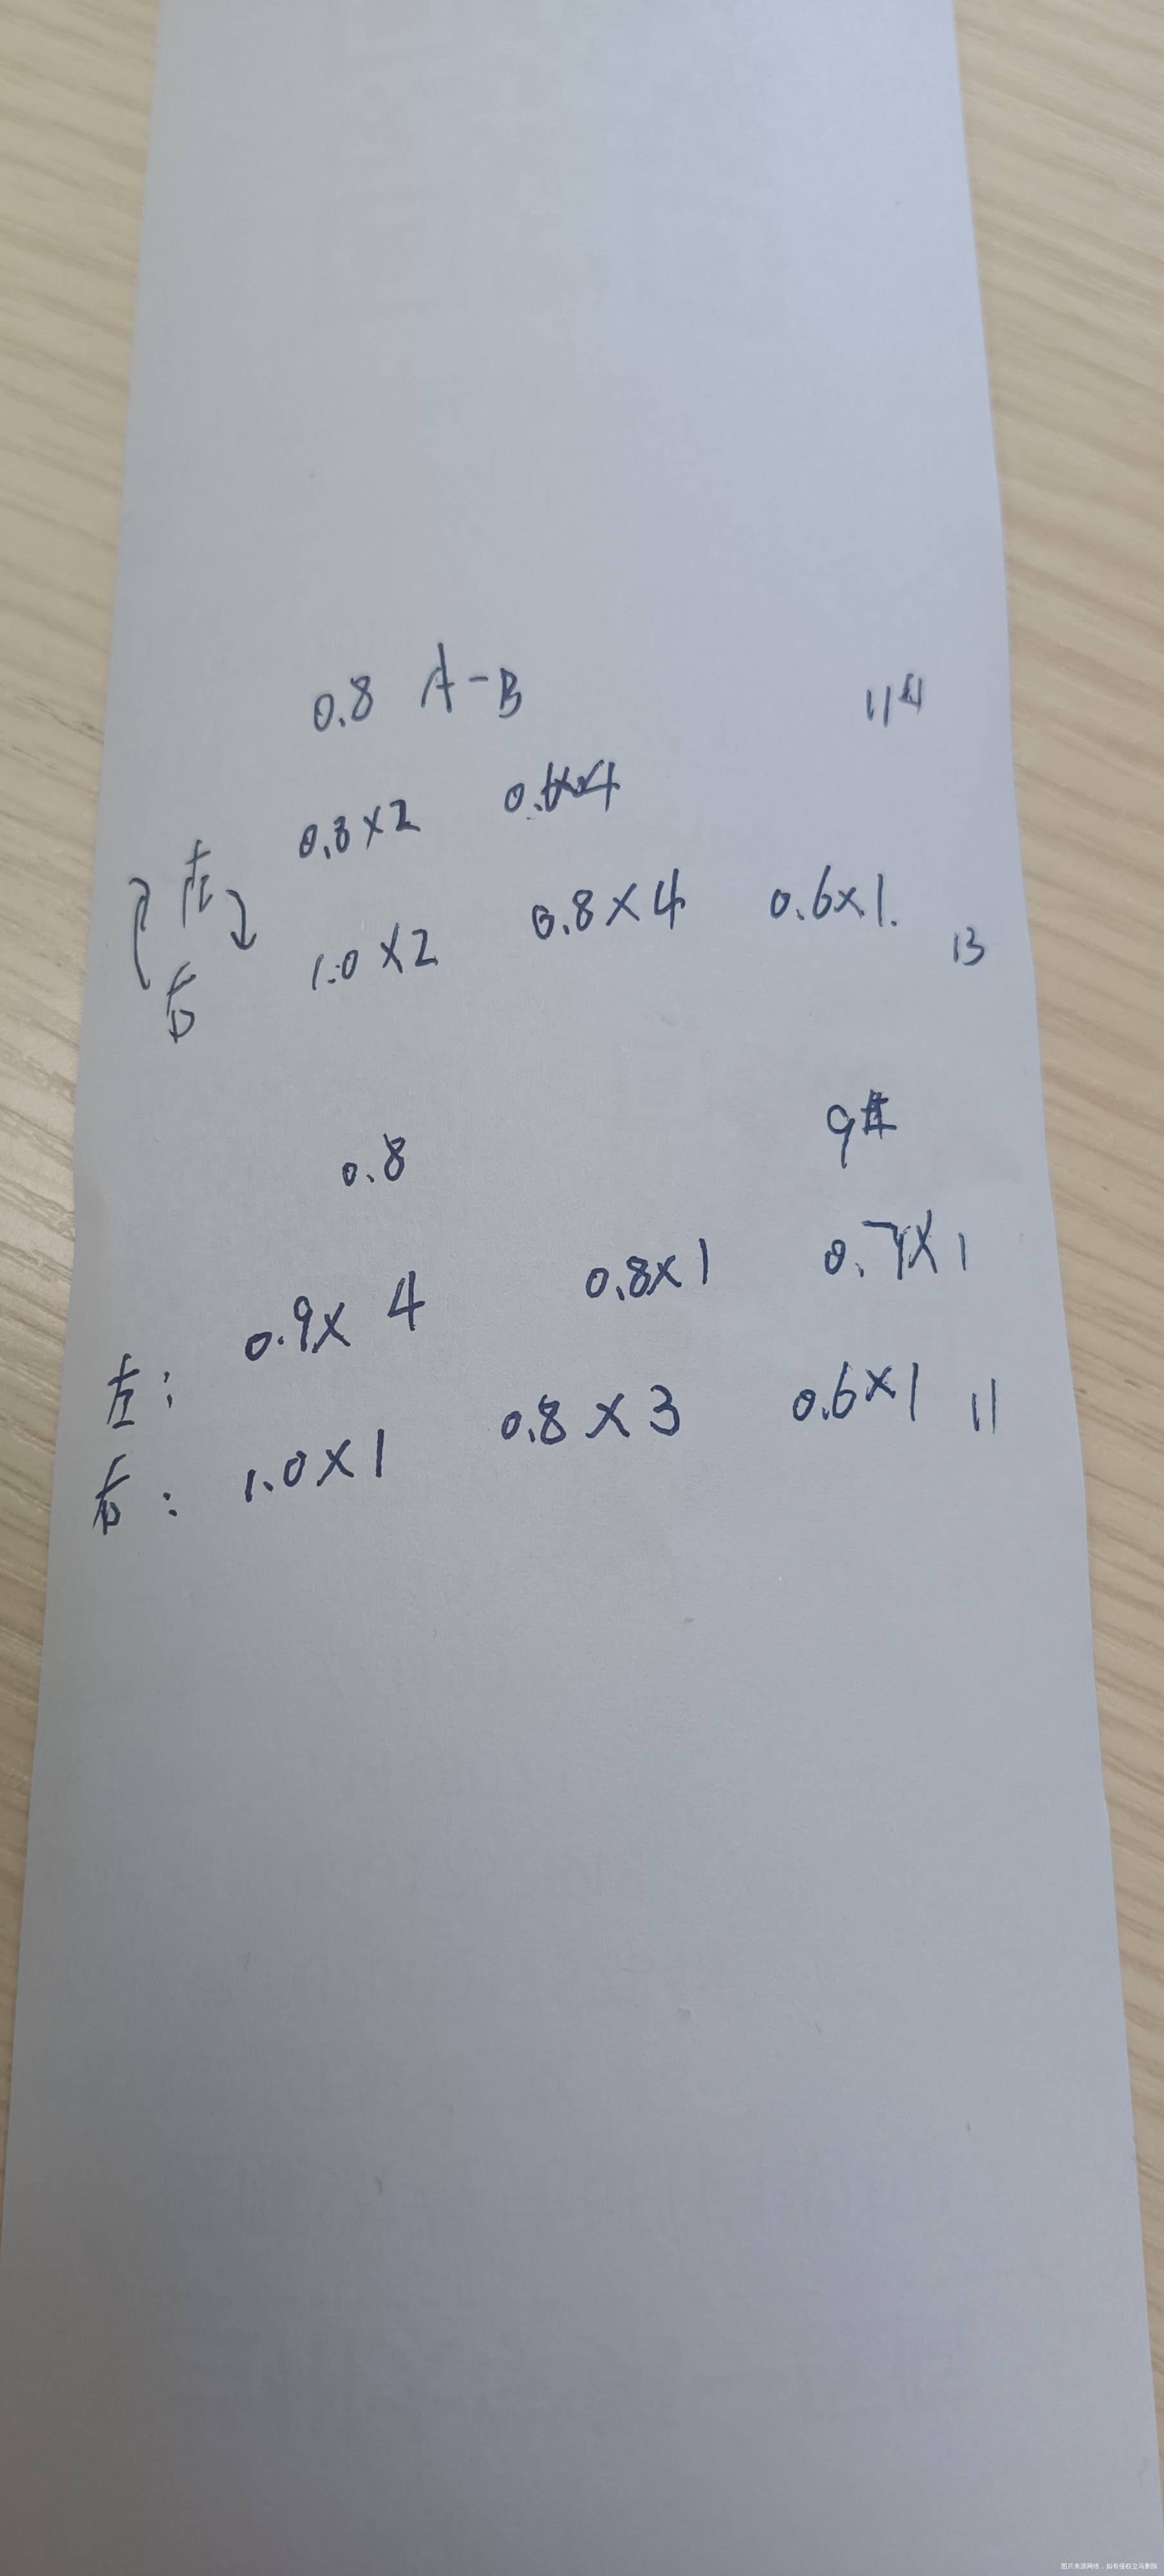 0.8 A-B 11#
左 0.8×2
右 1.0×2 0.8×4 0.6×1. 13
0.8 9#
左: 0.9×4 0.8×1 0.7×1
右: 1.0×1 0.8×3 0.6×1 11
图片来源网络,如有侵权立马删除